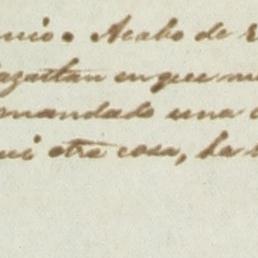 nio. Acabo de
azatlan en que me
mandado una
ni otra cosa, la